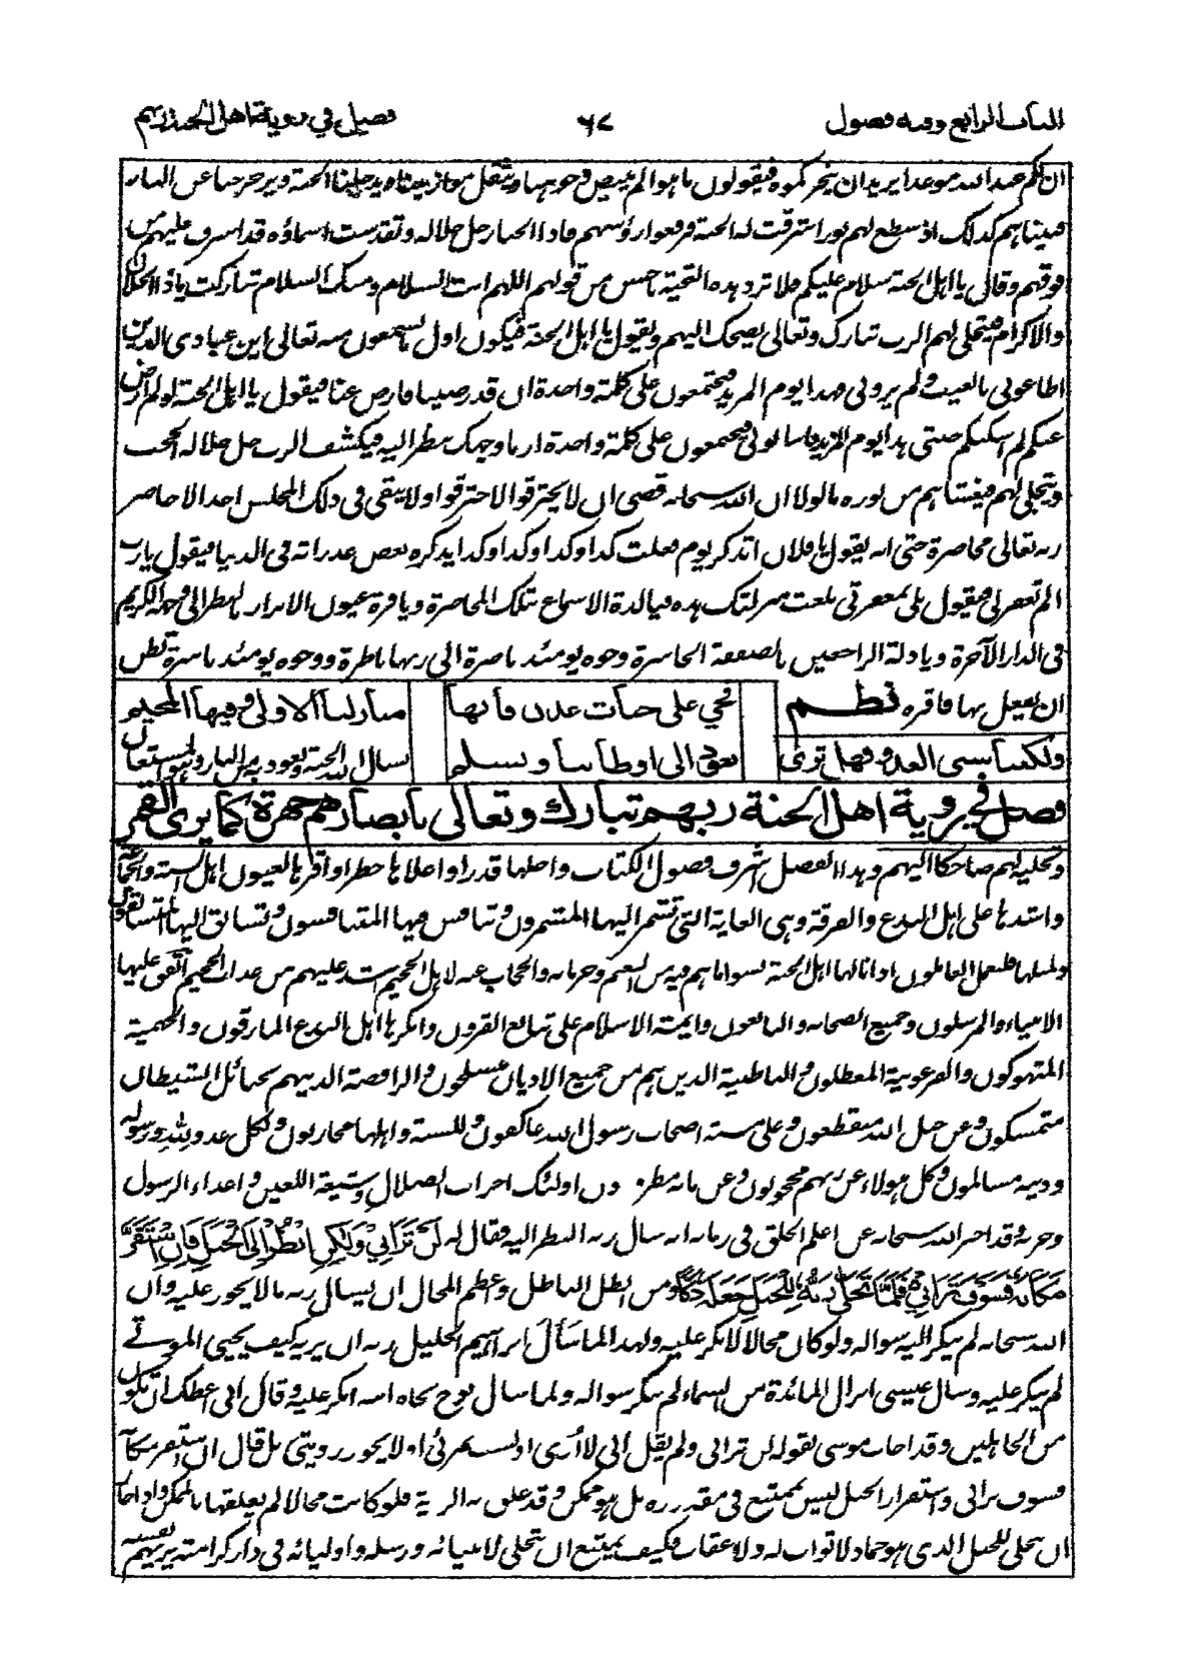 الباب الرابع وفيه فصول ٦٧ فصل في روية اهل الجنة ربهم
ان لكم عند الله موعدا يريد ان ينجزكموه فيقولون ما هو الم يبيض وجوهنا ويثقل موازيننا ويدخلنا الجنة ويزحزحنا عن النار
فبيناهم كذلك اذ سطع لهم نور اشرقت له الجنة فرفعوا رؤسهم فاذا الجبار جل جلاله وتقدست اسماؤه قد اشرف عليهم من
فوقهم وقال يا اهل الجنة سلام عليكم فلا ترد هذه التحية باحسن من قولهم اللهم انت السلام ومنك السلام تباركت يا ذا الجلال
والاكرام فيتجلى لهم الرب تبارك وتعالى يضحك اليهم ويقول يا اهل الجنة فيكون اول ما يسمعون منه تعالى اين عبادي الذين
اطاعوني بالغيب ولم يروني فهذا يوم المزيد فيجتمعون على كلمة واحدة ان قد رضينا فارض عنا فيقول يا اهل الجنة لو لم ارض
عنكم لم اسكنكم جنتي هذا يوم المزيد فاسالوني فيجتمعون على كلمة واحدة ارنا وجهك ننظر اليه فيكشف الرب جل جلاله الحجب
ويتجلى لهم فيغشاهم من نوره ما لولا ان الله سبحانه قضى ان لا يحترقوا لاحترقوا ولا يبقى في ذلك المجلس احد الا حاضره
ربه تعالى محاضرة حتى انه يقول يا فلان اتذكر يوم فعلت كذا وكذا وكذا وكذا يذكره بعض غدراته في الدنيا فيقول يا رب
الم تغفر لي فيقول بلى بمغفرتي بلغت منزلتك هذه فيا لذة الاسماع بتلك المحاضرة ويا قرة عيون الابرار بالنظر الى وجهه الكريم
في الدار الآخرة ويا ذلة الراجعين بالصفقة الخاسرة وجوه يومئذ ناضرة الى ربها ناظرة ووجوه يومئذ باسرة تظن
ان يفعل بها فاقره نظم فحي على جنات عدن فانها منازلنا الاولى وفيها المخيم
ولكننا سبي العدو فهل ترى نعود الى اوطاننا ونسلم نسال الله الجنة ونعوذ به من النار وهو المستعان
فصل في روية اهل الجنة ربهم تبارك وتعالى بابصارهم جهرة كما يرى القمر
وتجليه لهم ضاحكا اليهم وهذا الفصل اشرف فصول الكتاب واجلها قدرا واعلاها خطرا واقرها لعيون اهل السنة والجماعة
واشدها على اهل البدع والفرقة وهي الغاية التي تشمر اليها المتشمرون وتنافس فيها المتنافسون وتسابق اليها المتسابقون
ولمثلها فليعمل العاملون اذا نالها اهل الجنة نسوا ما هم فيه من النعيم وحرمانه والحجاب عنه لاهل الجحيم اشد عليهم من عذاب الجحيم اتفق عليها
الانبياء والمرسلون وجميع الصحابة والتابعون وايمة الاسلام على تتابع القرون وانكرها اهل البدع المارقون والجهمية
المتهوكون والفرعونية المعطلون والباطنية الذين هم من جميع الاديان منسلخون والرافضة الذين هم بحبائل الشيطان
متمسكون وعن حبل الله منقطعون وعلى مسبة اصحاب رسول الله عاكفون وللسنة واهلها محاربون ولكل عدو لله ورسوله
ودينه مسالمون وكل هولاء عن ربهم محجوبون وعن بابه مطرودون اولئك احزاب الضلال وشيعة اللعين واعداء الرسول
وحزبه وقد اخبر الله سبحانه عن اعلم الخلق في زمانه انه سال ربه النظر اليه فقال له لَنْ تَرَانِي وَلٰكِنِ انْظُرْ اِلَى الْجَبَلِ فَاِنِ اسْتَقَرَّ
مَكَانَهُ فَسَوْفَ تَرَانِي فَلَمَّا تَجَلّٰى رَبُّهُ لِلْجَبَلِ جَعَلَهُ دَكًّا ومن ابطل الباطل واعظم المحال ان يسال ربه ما لا يجوز عليه وان
الله سبحانه لم ينكر اليه سواله ولو كان محالا لانكر عليه ولهذا لما سأل ابراهيم الخليل ربه ان يريه كيف يحيي الموتى
لم ينكر عليه وسال عيسى انزال المائدة من السماء لم ينكر سواله ولما سال نوح نجاه ابنه انكر عليه وقال اني اعظك ان تكون
من الجاهلين وقد اجاب موسى بقوله لن تراني ولم يقل اني لا أرى او لست بمرئي او لا يجوز رويتي بل قال ان استقر مكانه
فسوف تراني واستقرار الجبل ليس بممتنع في مقدوره بل هو ممكن وقد علق به الروية فلو كانت محالا لم يعلقها بالممكن واذا جاز
ان يتجلى للجبل الذي هو جماد لا ثواب له ولا عقاب فكيف يمتنع ان يتجلى لانبيائه ورسله واوليائه في دار كرامته يريهم نفسه